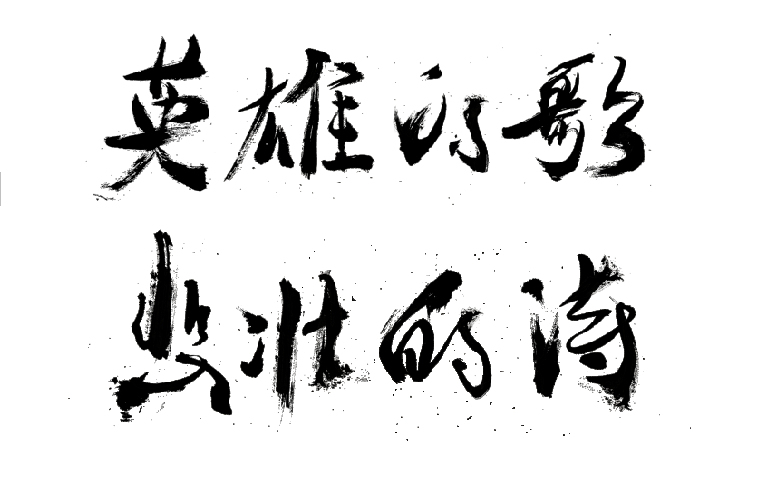 英雄的歌
悲壮的诗